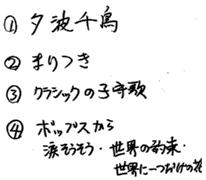 ① 夕波千鳥
② まりつき
③ クラシックの子守歌
④ ポップスから
涙そうそう・世界の約束・
世界に一つだけの花